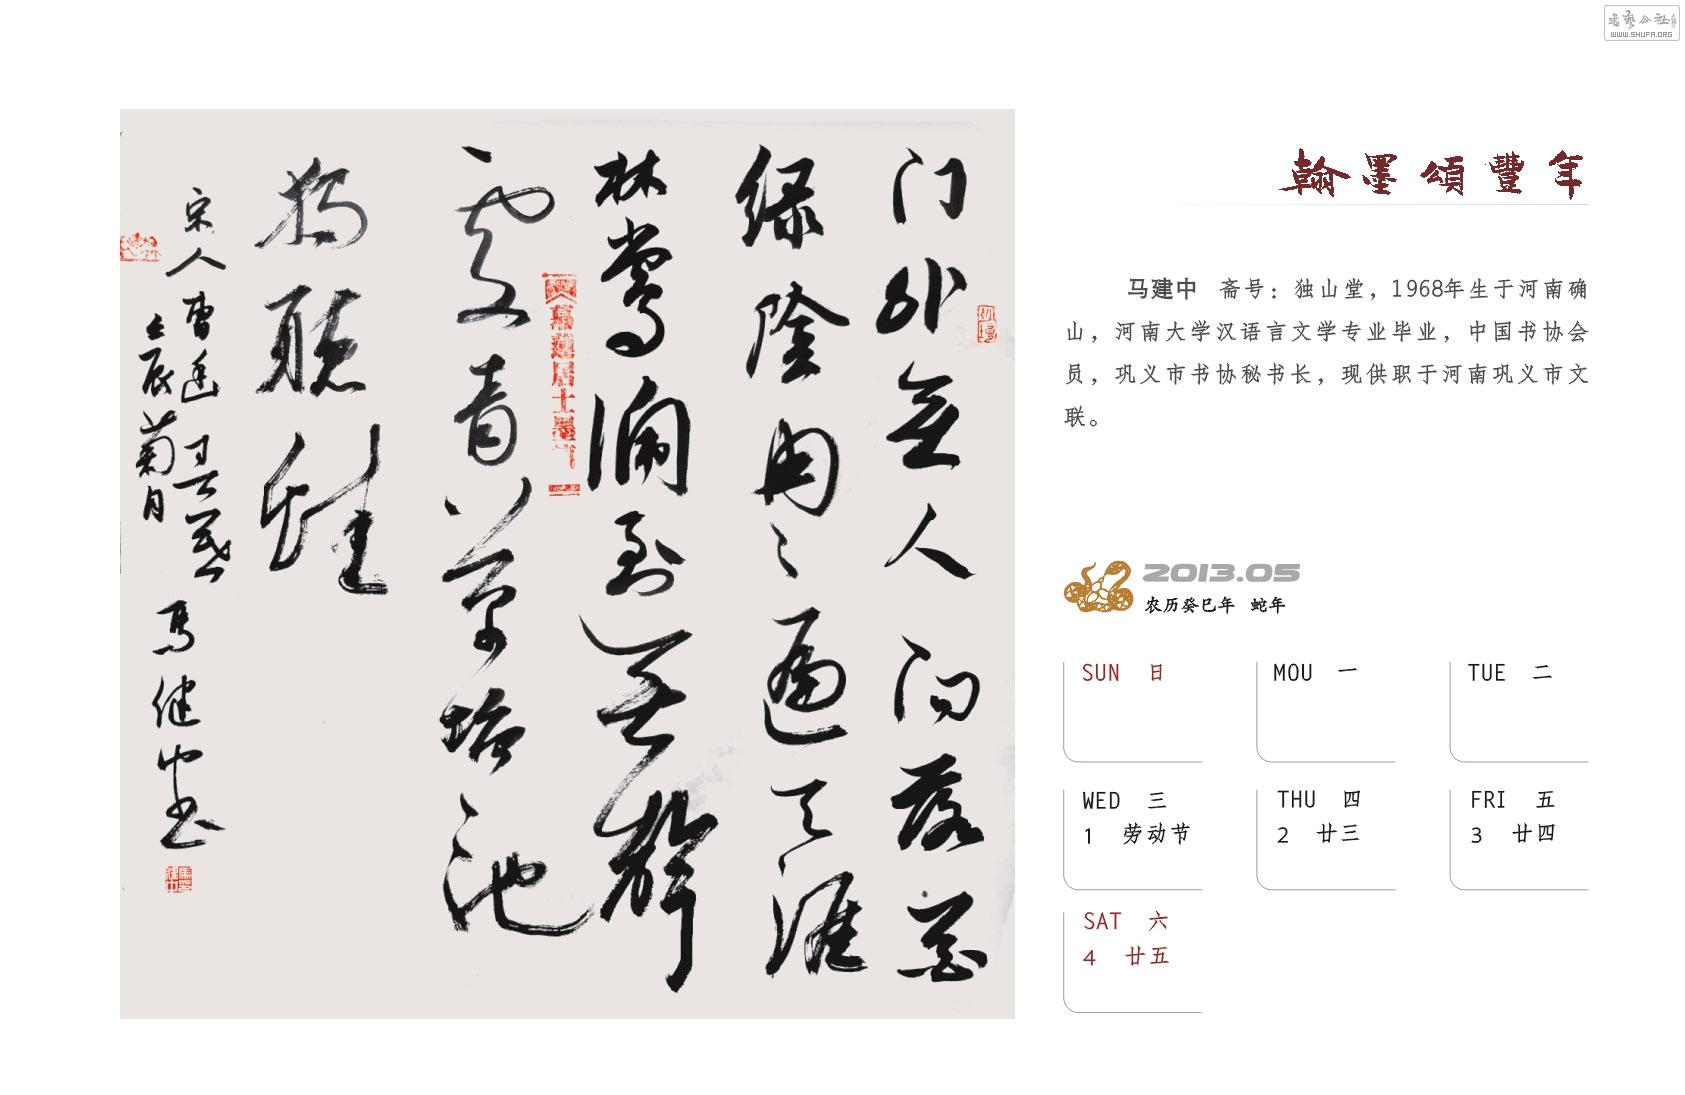 门外無人问落花
绿陰冉々遍天涯
林鶯啼到無聲
處青草塘池
獨聽蛙
宋人曹豳
壬辰菊月
馬建中书
翰墨頌豐年
马建中 斋号：独山堂，1968年生于河南确
山，河南大学汉语言文学专业毕业，中国书协会
员，巩义市书协秘书长，现供职于河南巩义市文
联。
2013.05
农历癸巳年 蛇年
SUN 日
MOU 一
TUE 二
WED 三
1 劳动节
THU 四
2 廿三
FRI 五
3 廿四
SAT 六
4 廿五
书艺公社
WWW.SHUFA.ORG